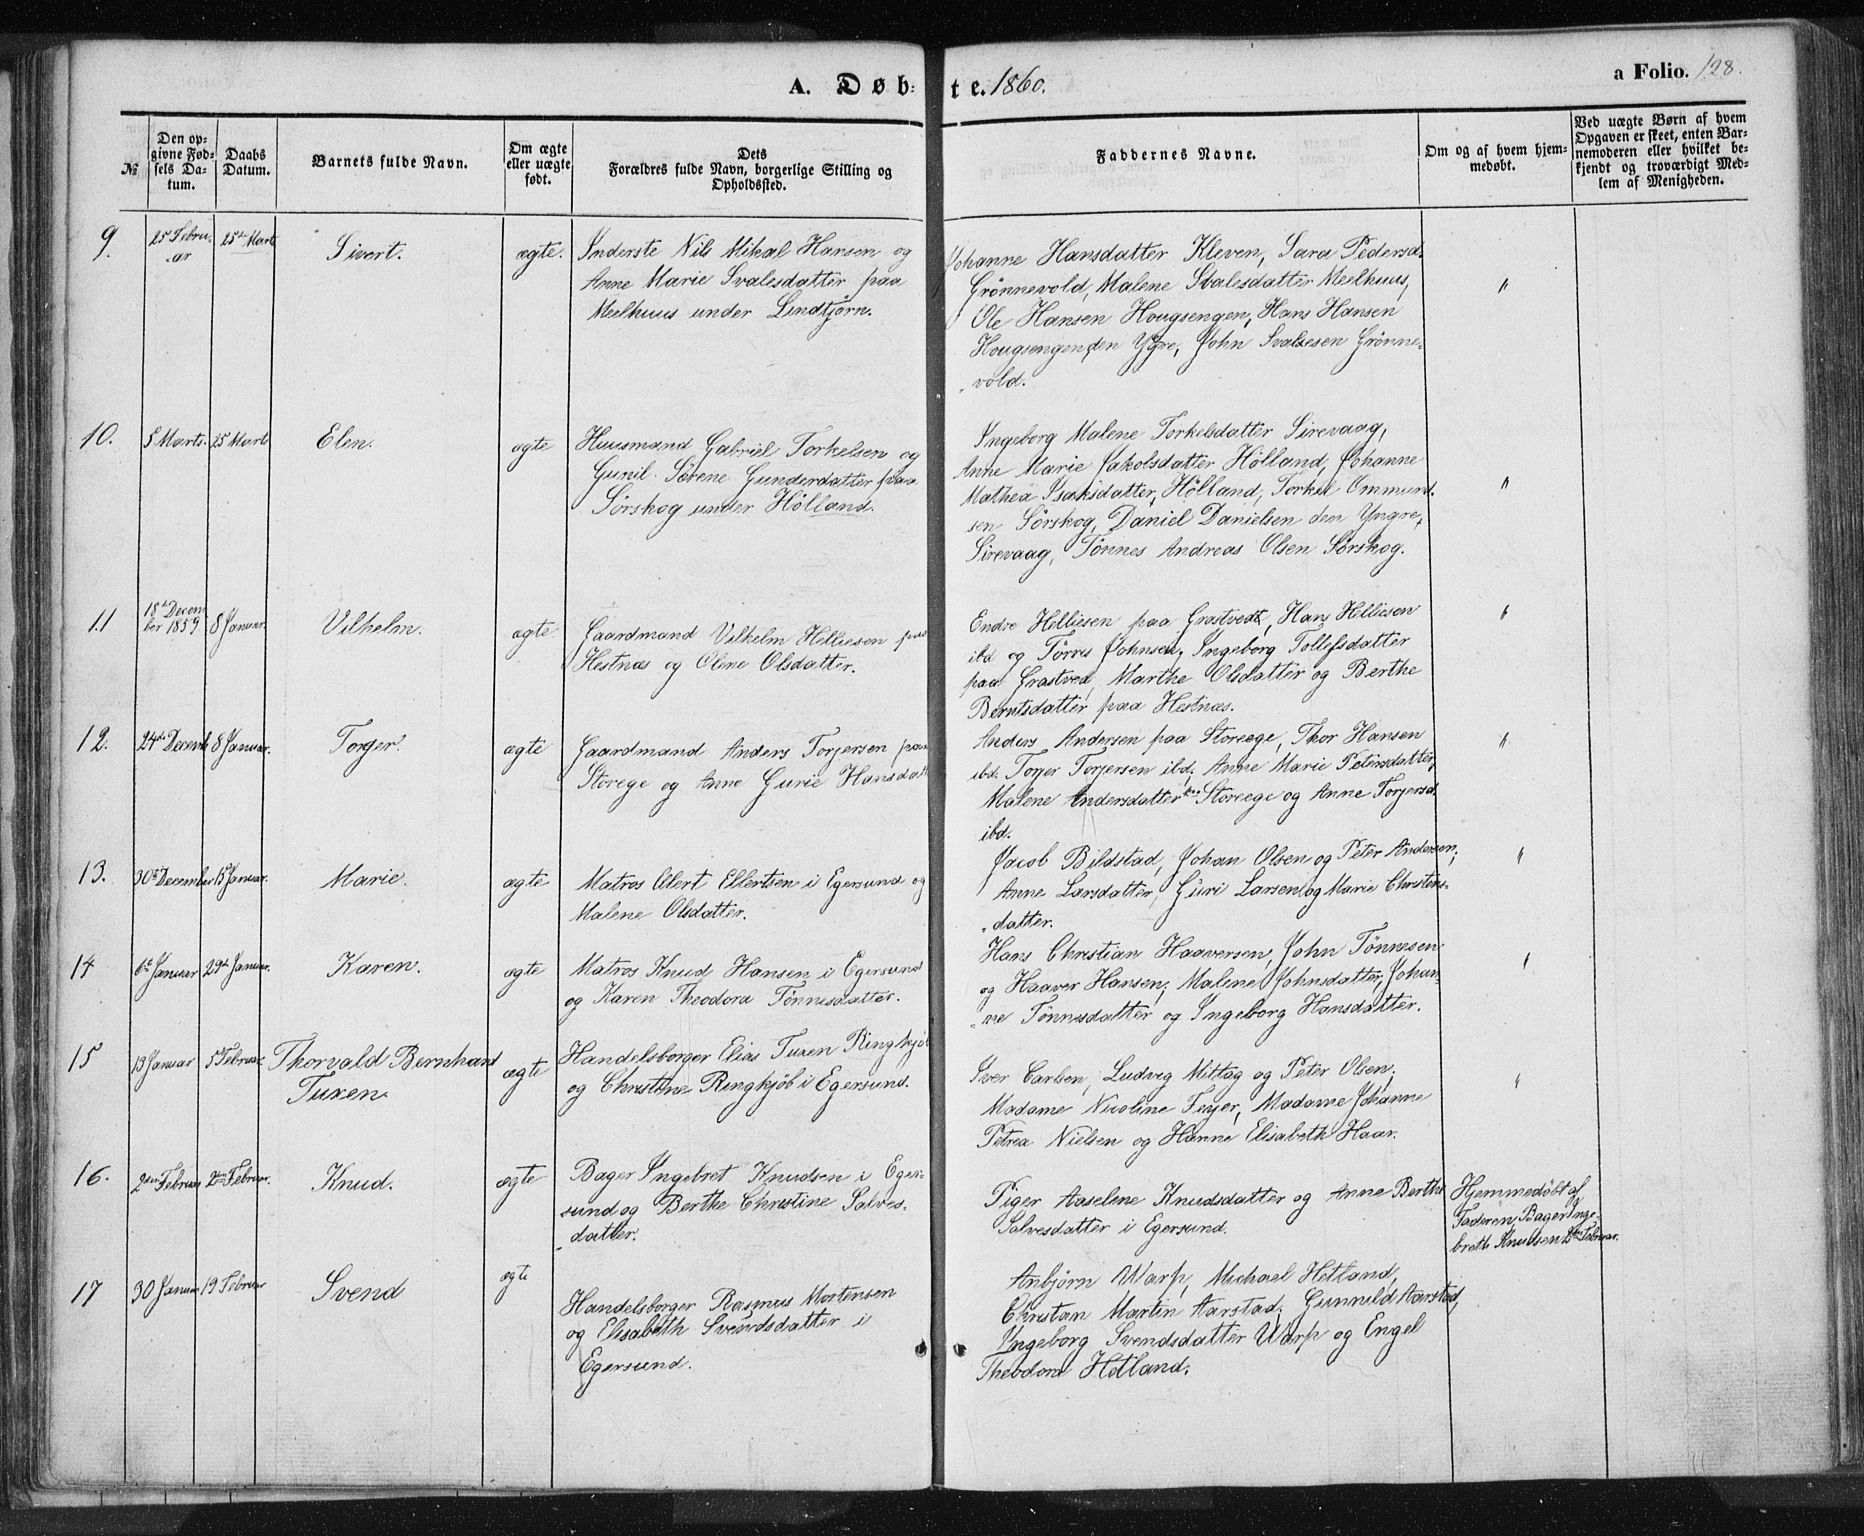 A. Døbte. 1860.
a Folio. 128.
№
Den opgivne Fødsels Datum.
Daabs Datum.
Barnets fulde Navn.
Om ægte eller uægte født.
Dets Forældres fulde Navn, borgerlige Stilling og Opholdssted.
Faddernes Navne.
Om og af hvem hjemmedøbt.
Ved uægte Børn af hvem Opgaven er skeet, enten Barnemoderen eller hvilket bekjendt og troværdigt Medlem af Menigheden.
9. 25 Februar 25de Marts Sivert. ægte.
Inderste Nils Mikal Hansen og
Anne Marie Svalesdatter paa
Meelhuus under Lindtjørn.
Johanne Hansdatter Kleven, Sara Pedersd.
Grönnevold, Malene Svalesdatter Meelhuus,
Ole Hansen Hougsengen, Hans Hansen
Hougsengen, den Ygre, John Svalesen Grönne-
vold.
"
10. 5 Marts. 25 Marts Elen. ægte
Huusmand Gabriel Torkelsen og
Gunil Sörene Gunderdatter paa
Sörskog under Hölland.
Ingeborg Malene Torkelsdatter Sirevaag,
Anne Marie Jakobsdatter Hölland, Johanne
Mathea Isaksdatter, Hölland, Torkel Ommund-
sen Sörskog, Daniel Danielsen den Yngre,
Sirevaag, Tönnes Andreas Olsen Sörskog.
"
11 18de Decem
ber 1859 8 Januar. Vilhelm. ægte
Gaardmand Vilhelm Helliesen paa
Hestnæs og Olene Olsdatter.
Endre Helliesen paa Grastvedt, Hans Helliesen
ibd og Törres Johnsen, Ingeborg Tollefsdatter
paa Grastved, Marthe Olsdatter og Berthe
Berntsdatter paa Hestnæs.
"
12. 24de Decemb 8 Januar. Torger. ægte
Gaardmand Anders Torjersen paa
Storege og Anne Gurie Hansdatt
Anders Andersen paa Storeege, Thor Hansen
ibd. Torjer Torjersen ibd; Anne Marie Petersdatter,
Malene Andersdatter paa Storeege og Anne Torjersd.
ibd.
"
13. 30te December 15 Januar. Marie. ægte
Matros Olert Ellertsen i Egersund og
Malene Olsdatter.
Jacob Bildstad, Johan Olsen og Peter Andersen;
Anne Larsdatter, Guri Larsen og Marie Christens-
datter.
"
14 6te Januar 29de Januar. Karen. ægte
Matros Knud Hansen i Egersund
og Karen Theodora Tönnesdatter.
Hans Christian Haaversen, John Tönnesen
og Haaver Hansen; Malene Johnsdatter, Johan-
ne Tönnesdatter og Ingeborg Hansdatter.
"
15 13 Januar 5te Februar Thorvald Bernhard
Tuxen. ægte
Handelsborger Elias Tuxen Ringkjöb
og Christine Ringkjöb i Egersund.
Iver Carlsen, Ludvig Mittag og Peter Olsen;
Madame Nicoline Feyer, Madame Johanne
Petrea Nielsen og Hanne Elisabeth Haar.
"
16. 2den Februar 2den Februar. Knud. ægte
Bager Ingebret Knudsen i Eger-
sund og Berthe Christine Salves-
datter.
Piger Aaselene Knudsdatter og Anne Berthe
Salvesdatter i Egersund.
Hjemmedöbt af
Faderen, Bager Inge-
breth Knudsen 2den Februar.
17 30 Januar 19 Februar Svend ægte
Handelsborger Rasmus Mortensen
og Elisabeth Svendsdatter i
Egersund.
Anbjörn Warp, Michael Hetland,
Christan Martin Aarstad; Gunnild Aarstad,
Ingeborg Svendsdatter Warp og Engel
Theodora Hetland.